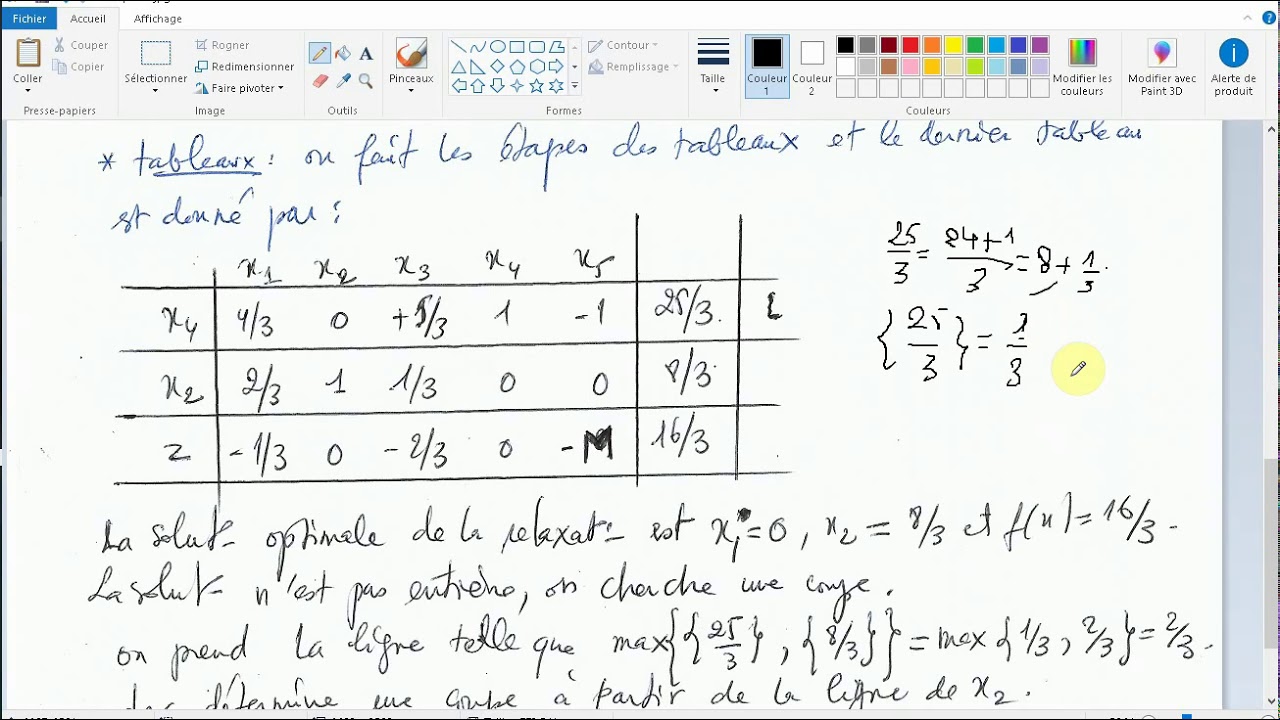 Fichier Accueil Affichage
Coller
Couper
Copier
Presse-papiers
Sélectionner
Rogner
Redimensionner
Faire pivoter
Image
Outils
Pinceaux
Formes
Contour
Remplissage
Taille
Couleur 1
Couleur 2
Couleurs
Modifier les couleurs
Modifier avec Paint 3D
Alerte de produit
* tableaux : on fait les étapes des tableaux et le dernier tableau
est donné par :
x1 x2 x3 x4 x5
x4 4/3 0 +5/3 1 -1 25/3. L
x2 2/3 1 1/3 0 0 8/3
z -1/3 0 -2/3 0 -M 16/3
25/3 = 24+1/3 = 8 + 1/3.
{25/3} = 1/3
La solut- optimale de la relaxat- est x1=0, x2 = 8/3 et f(x)=16/3.
La solut- n'est pas entière, on cherche une coupe.
on prend la ligne telle que max{{25/3}, {8/3}} = max{1/3, 2/3} = 2/3.
détermine une coupe à partir de la ligne de x2.